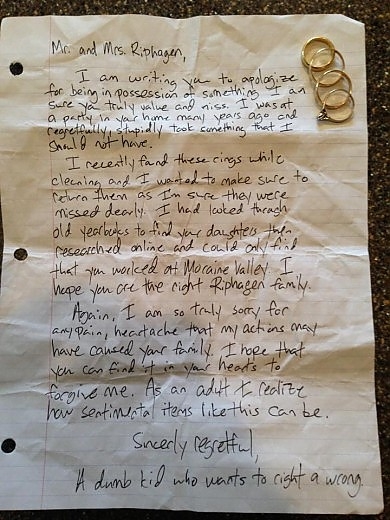 Mr. and Mrs. Riphagen,
I am writing you to apologize
for being in possession of something I am
sure you truly value and miss. I was at
a party in your home many years ago and
regretfully, stupidly took something that I
should not have.
I recently found these rings while
cleaning and I wanted to make sure to
return them as I'm sure they were
missed dearly. I had looked through
old yearbooks to find your daughters then
researched online and could only find
that you worked at Moraine Valley. I
hope you are the right Riphagen family.
Again, I am so truly sorry for
any pain, heartache that my actions may
have caused your family. I hope that
you can find it in your hearts to
forgive me. As an adult I realize
how sentimental items like this can be.
Sincerly regretful,
A dumb kid who wants to right a wrong.